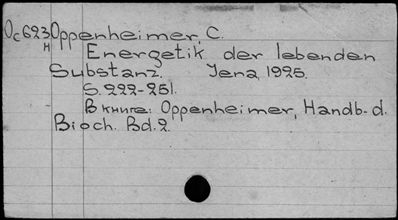 Oc623 Oppenheimer, C.
H
Energetik der lebenden
Substanz. Jena, 1925.
S. 222-251.
В книге: Oppenheimer, Handb. d.
Bioch. Bd. 2.